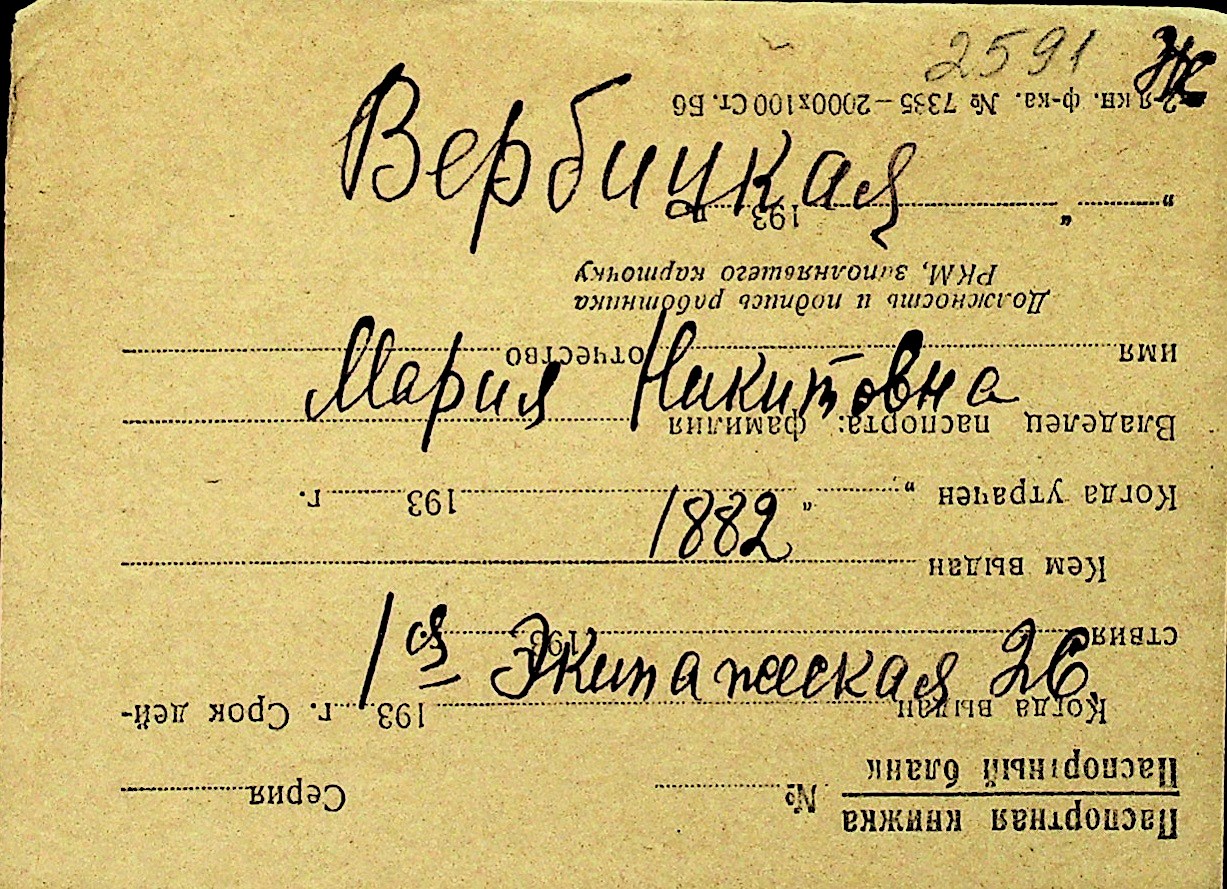 2591 Ж
Вербицкая
Мария Никитовна
1882
1я Экипажеская 26
Паспортная книжка
Паспортный бланк № Серия
Когда выдан 193 г. Срок дей-
ствия 193
Кем выдан
Когда утрачен „ “ 193 г.
Владелец паспорта: фамилия
имя отчество
Должность и подпись работника
РКМ, заполнявшего карточку
„ “ 193 г.
2-я кн. ф-ка. № 7335—2000х100 Ст. Бб